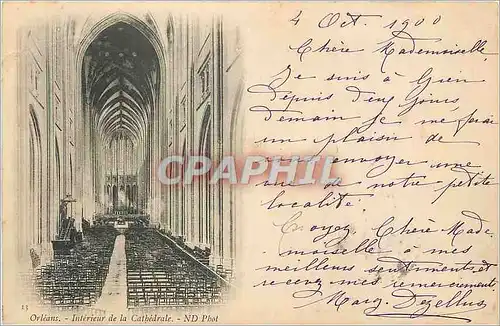 4 Oct. 1900
Chère Mademoiselle
Je suis à Gien
depuis deux jours
demain je me ferai
un plaisir de
vous envoyer une
vue de notre petite
localité.
Croyez Chère Made-
moiselle à mes
meilleurs sentiments et
recevez mes remerciements
Marg.
CPARAMA.COM
13
Orléans. - Intérieur de la Cathédrale. - ND Phot